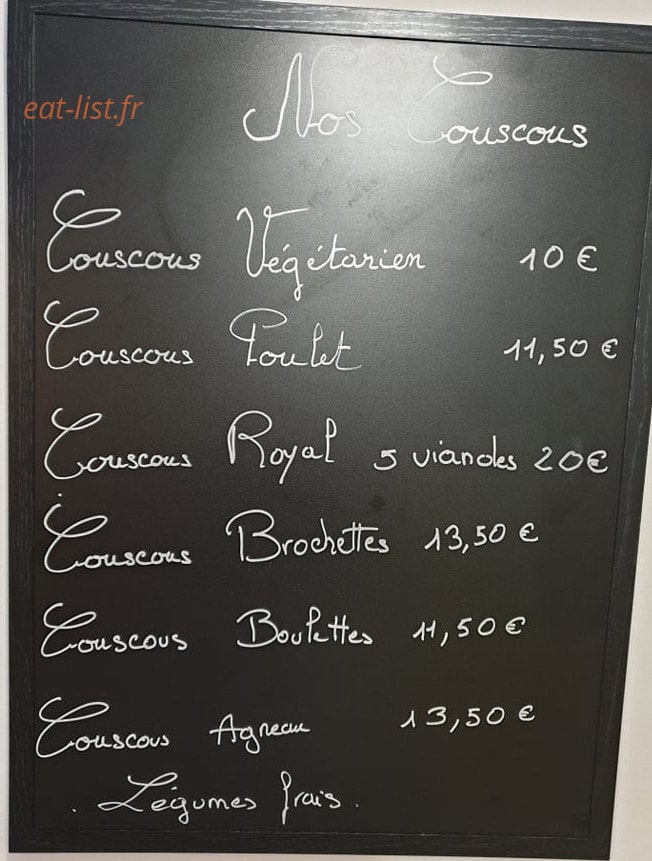 eat-list.fr
Nos Couscous
Couscous Végétarien 10 €
Couscous Poulet 11,50 €
Couscous Royal 5 viandes 20€
Couscous Brochettes 13,50 €
Couscous Boulettes 11,50 €
Couscous Agneau 13,50 €
. Légumes frais .